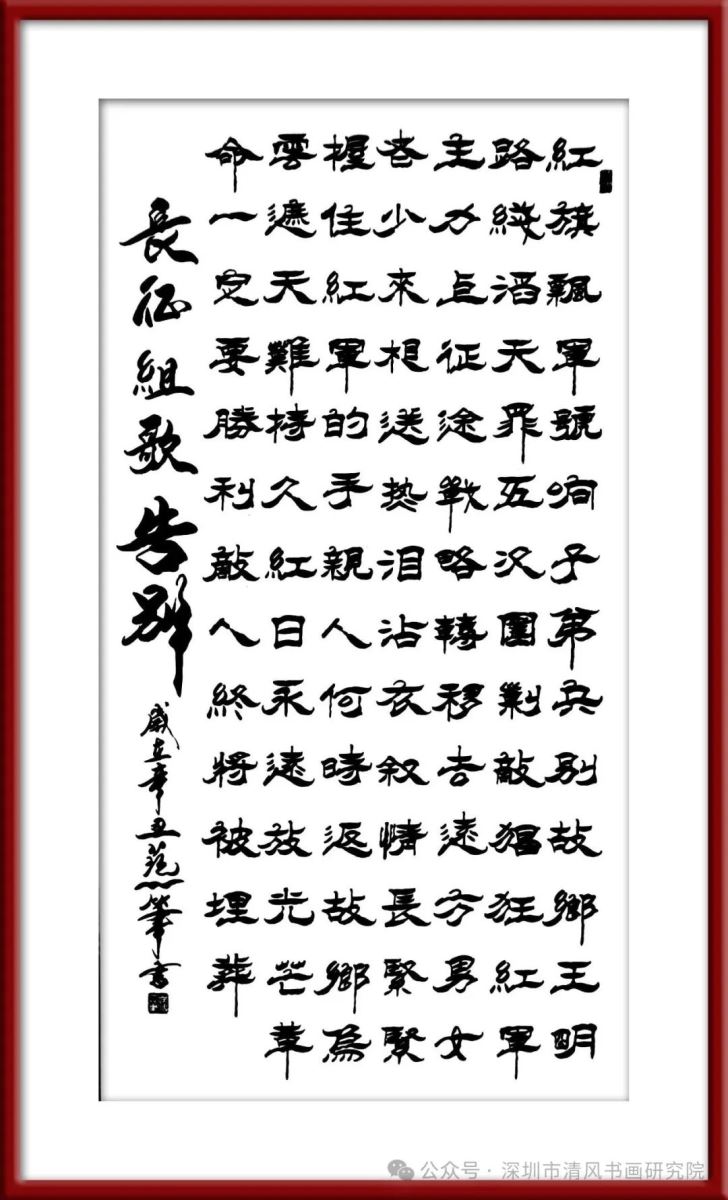 紅旗飄軍號响子弟兵別故鄉王明
路綫滔天罪五次圍剿敵猖狂紅軍
主力上征途戰略轉移去遠方男女
老少來相送热泪沾衣叙情長緊緊
握住紅軍的手親人何時返故鄉烏
雲遮天難持久紅日永遠放光芒革
命一定要勝利敵人終將被埋葬
長征組歌告别
歲在辛丑
公众号 · 深圳市清风书画研究院